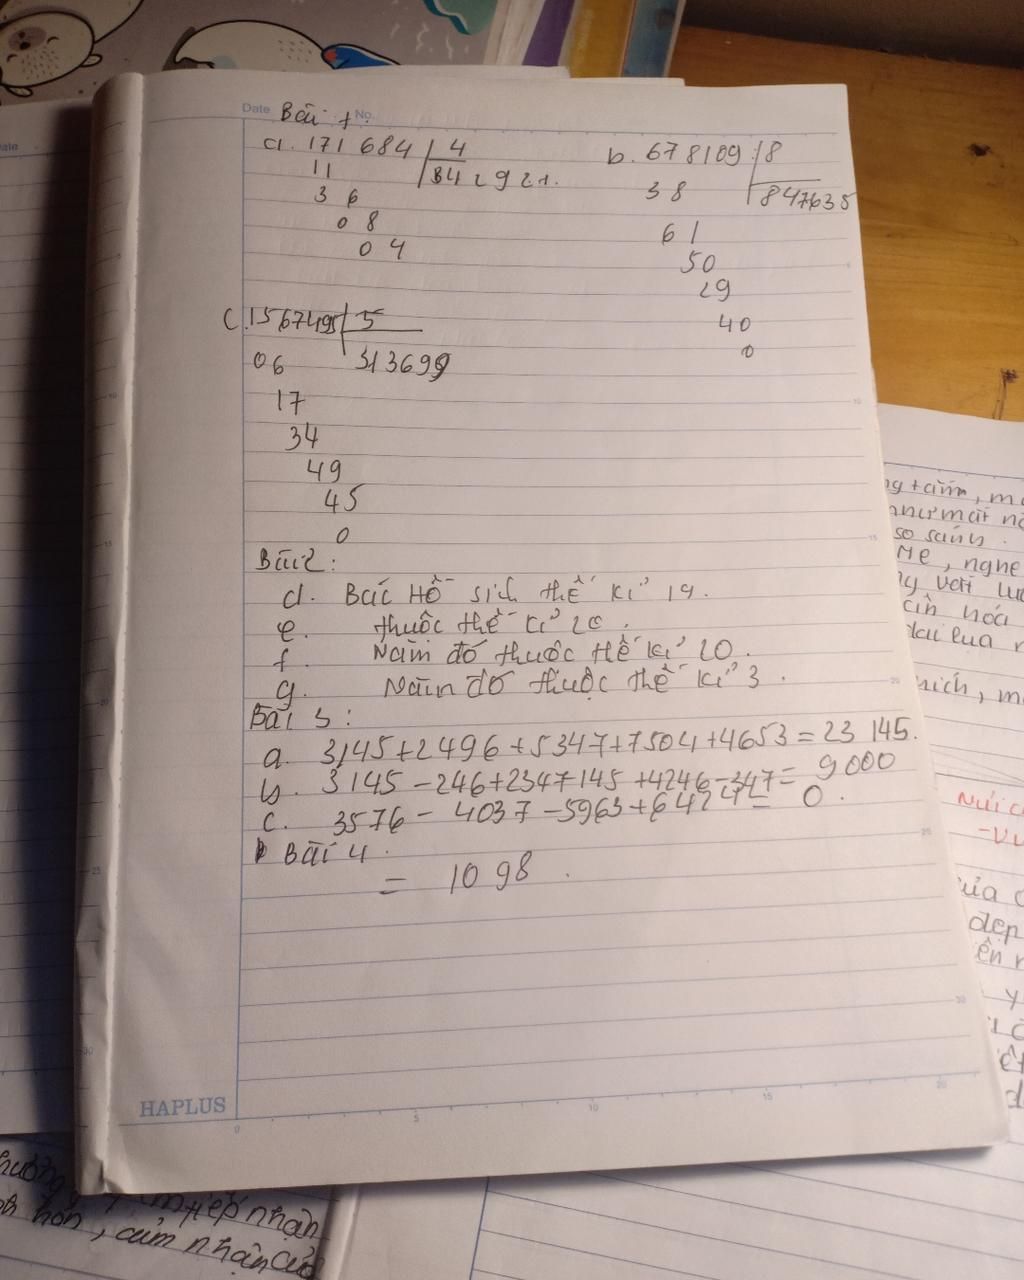 Date Bài 1 No.
a. 171 684 | 4
11 | 842921.
3 6
0 8
0 4
b. 678109 | 8
38 | 847635
61
50
29
40
0
c. 1567495 | 5
06 313699
17
34
49
45
0
Bài 2:
d. Bác Hồ sinh thế kỉ 19.
e. thuộc thế kỉ 20.
f. Năm đó thuộc thế kỉ 20.
g. Năm đó thuộc thế kỉ 3.
Bài 3:
a. 3145+2496+5347+7504+4653=23 145.
b. 3145-246+2347145+4246-347= 9000
c. 3576- 4037-5963+6424= 0.
Bài 4.
= 1098.
HAPLUS
so sánh.
, nghe
nói
đẹp
hòn, cảm nhận của